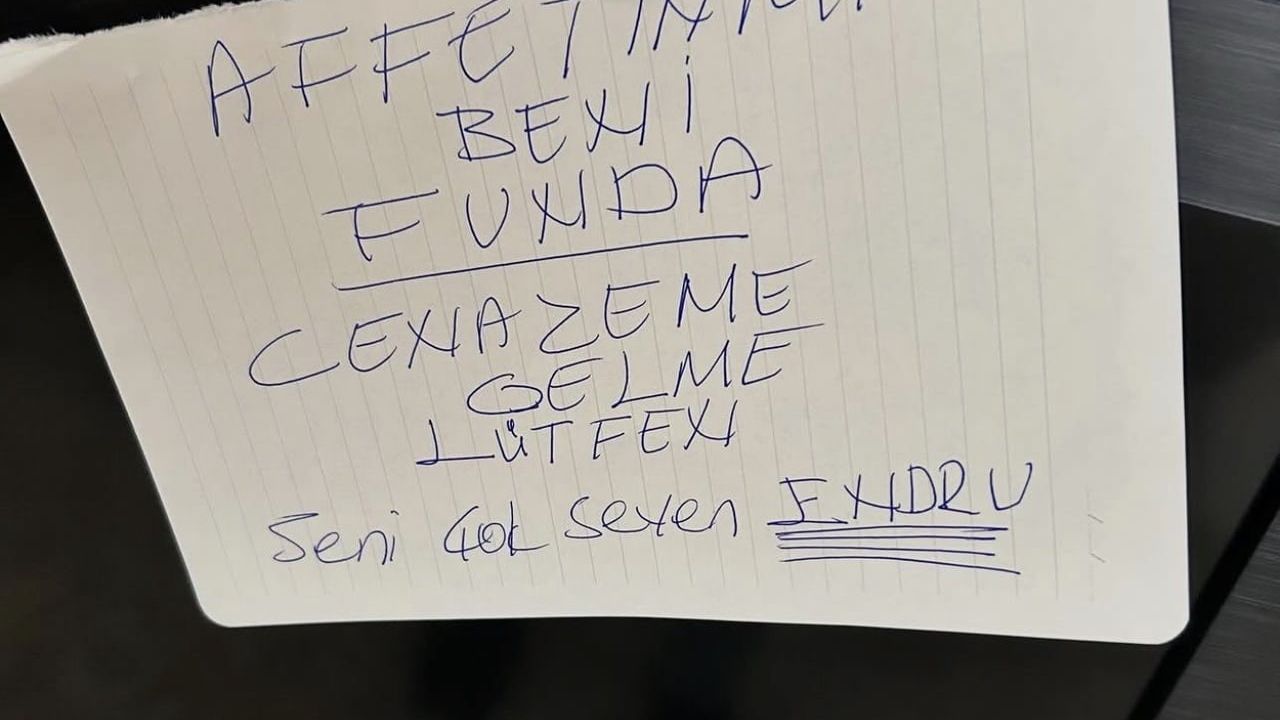 AFFETİN
BENİ
FUNDA
CENAZEME
GELME
LÜTFEN
Seni çok seven ENDRU